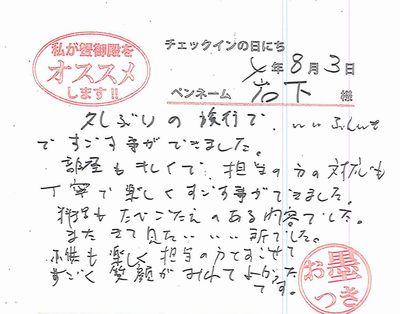 私が蟹御殿を
オススメ
します!!
チェックインの日にち
4年8月3日
ペンネーム 岩下 様
久しぶりの旅行で、いいふんいき
ですごす事ができました。
部屋もキレイで、担当の方の対応も
丁寧で楽しくすごす事ができました。
料理もたべごたえのある内容でした。
またきて見たいいい所でした。
子供も楽しく担当の方ですごせて
すごく笑顔がみれてよかった
です。
お墨つき